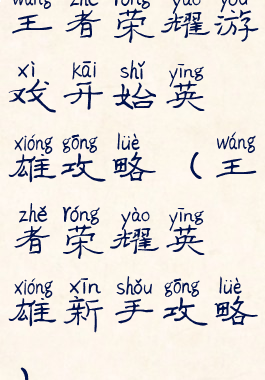 wáng zhě róng yào yóu
王者荣耀游
xì kāi shǐ yīng
戏开始英
xióng gōng lüè wáng
雄攻略（王
zhě róng yào yīng
者荣耀英
xióng xīn shǒu gōng lüè
雄新手攻略
）